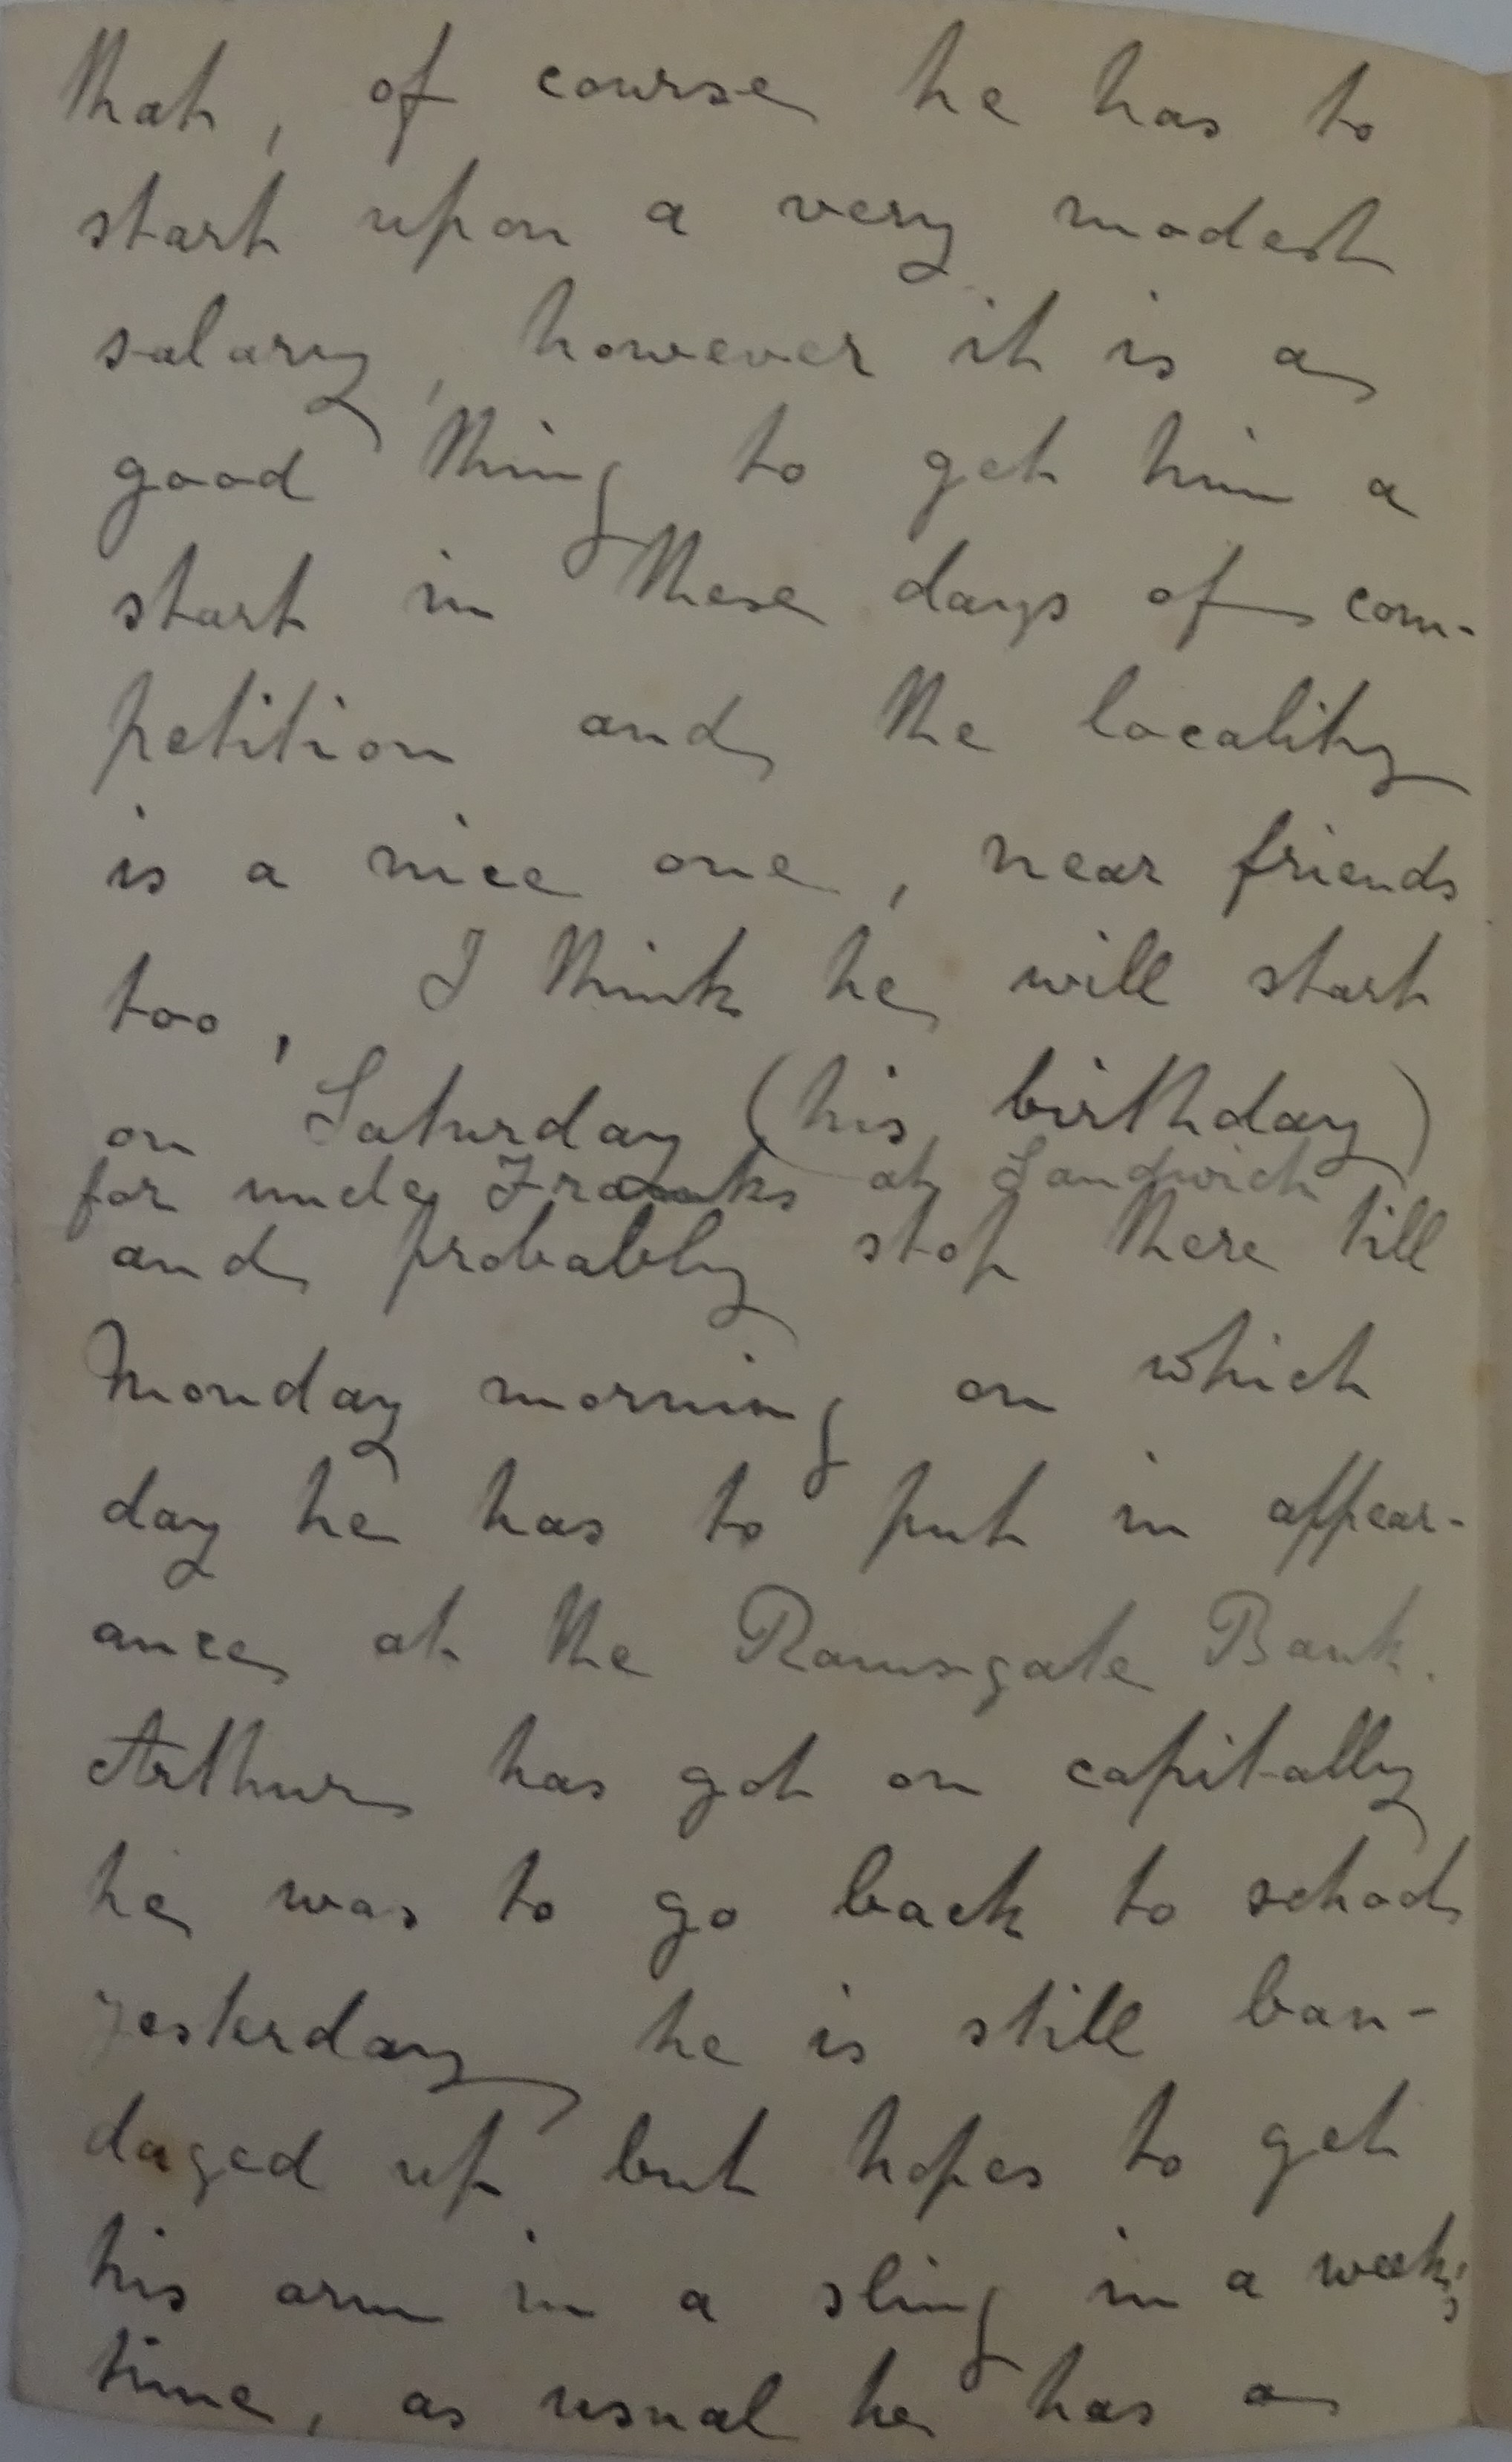 that, of course he has to
start upon a very modest
salary, however it is a
good thing to get him a
start in these days of com-
petition and the locality
is a nice one, near friends
too, I think he will start
on Saturday (his birthday)
for uncle Franks at Sandwich
and probably stop there till
Monday morning on which
day he has to put in appear-
ance at the Ramsgate Bank.
Arthur has got on capitally
he was to go back to school
yesterday he is still ban-
daged up but hopes to get
his arm in a sling in a week's
time, as usual he has a